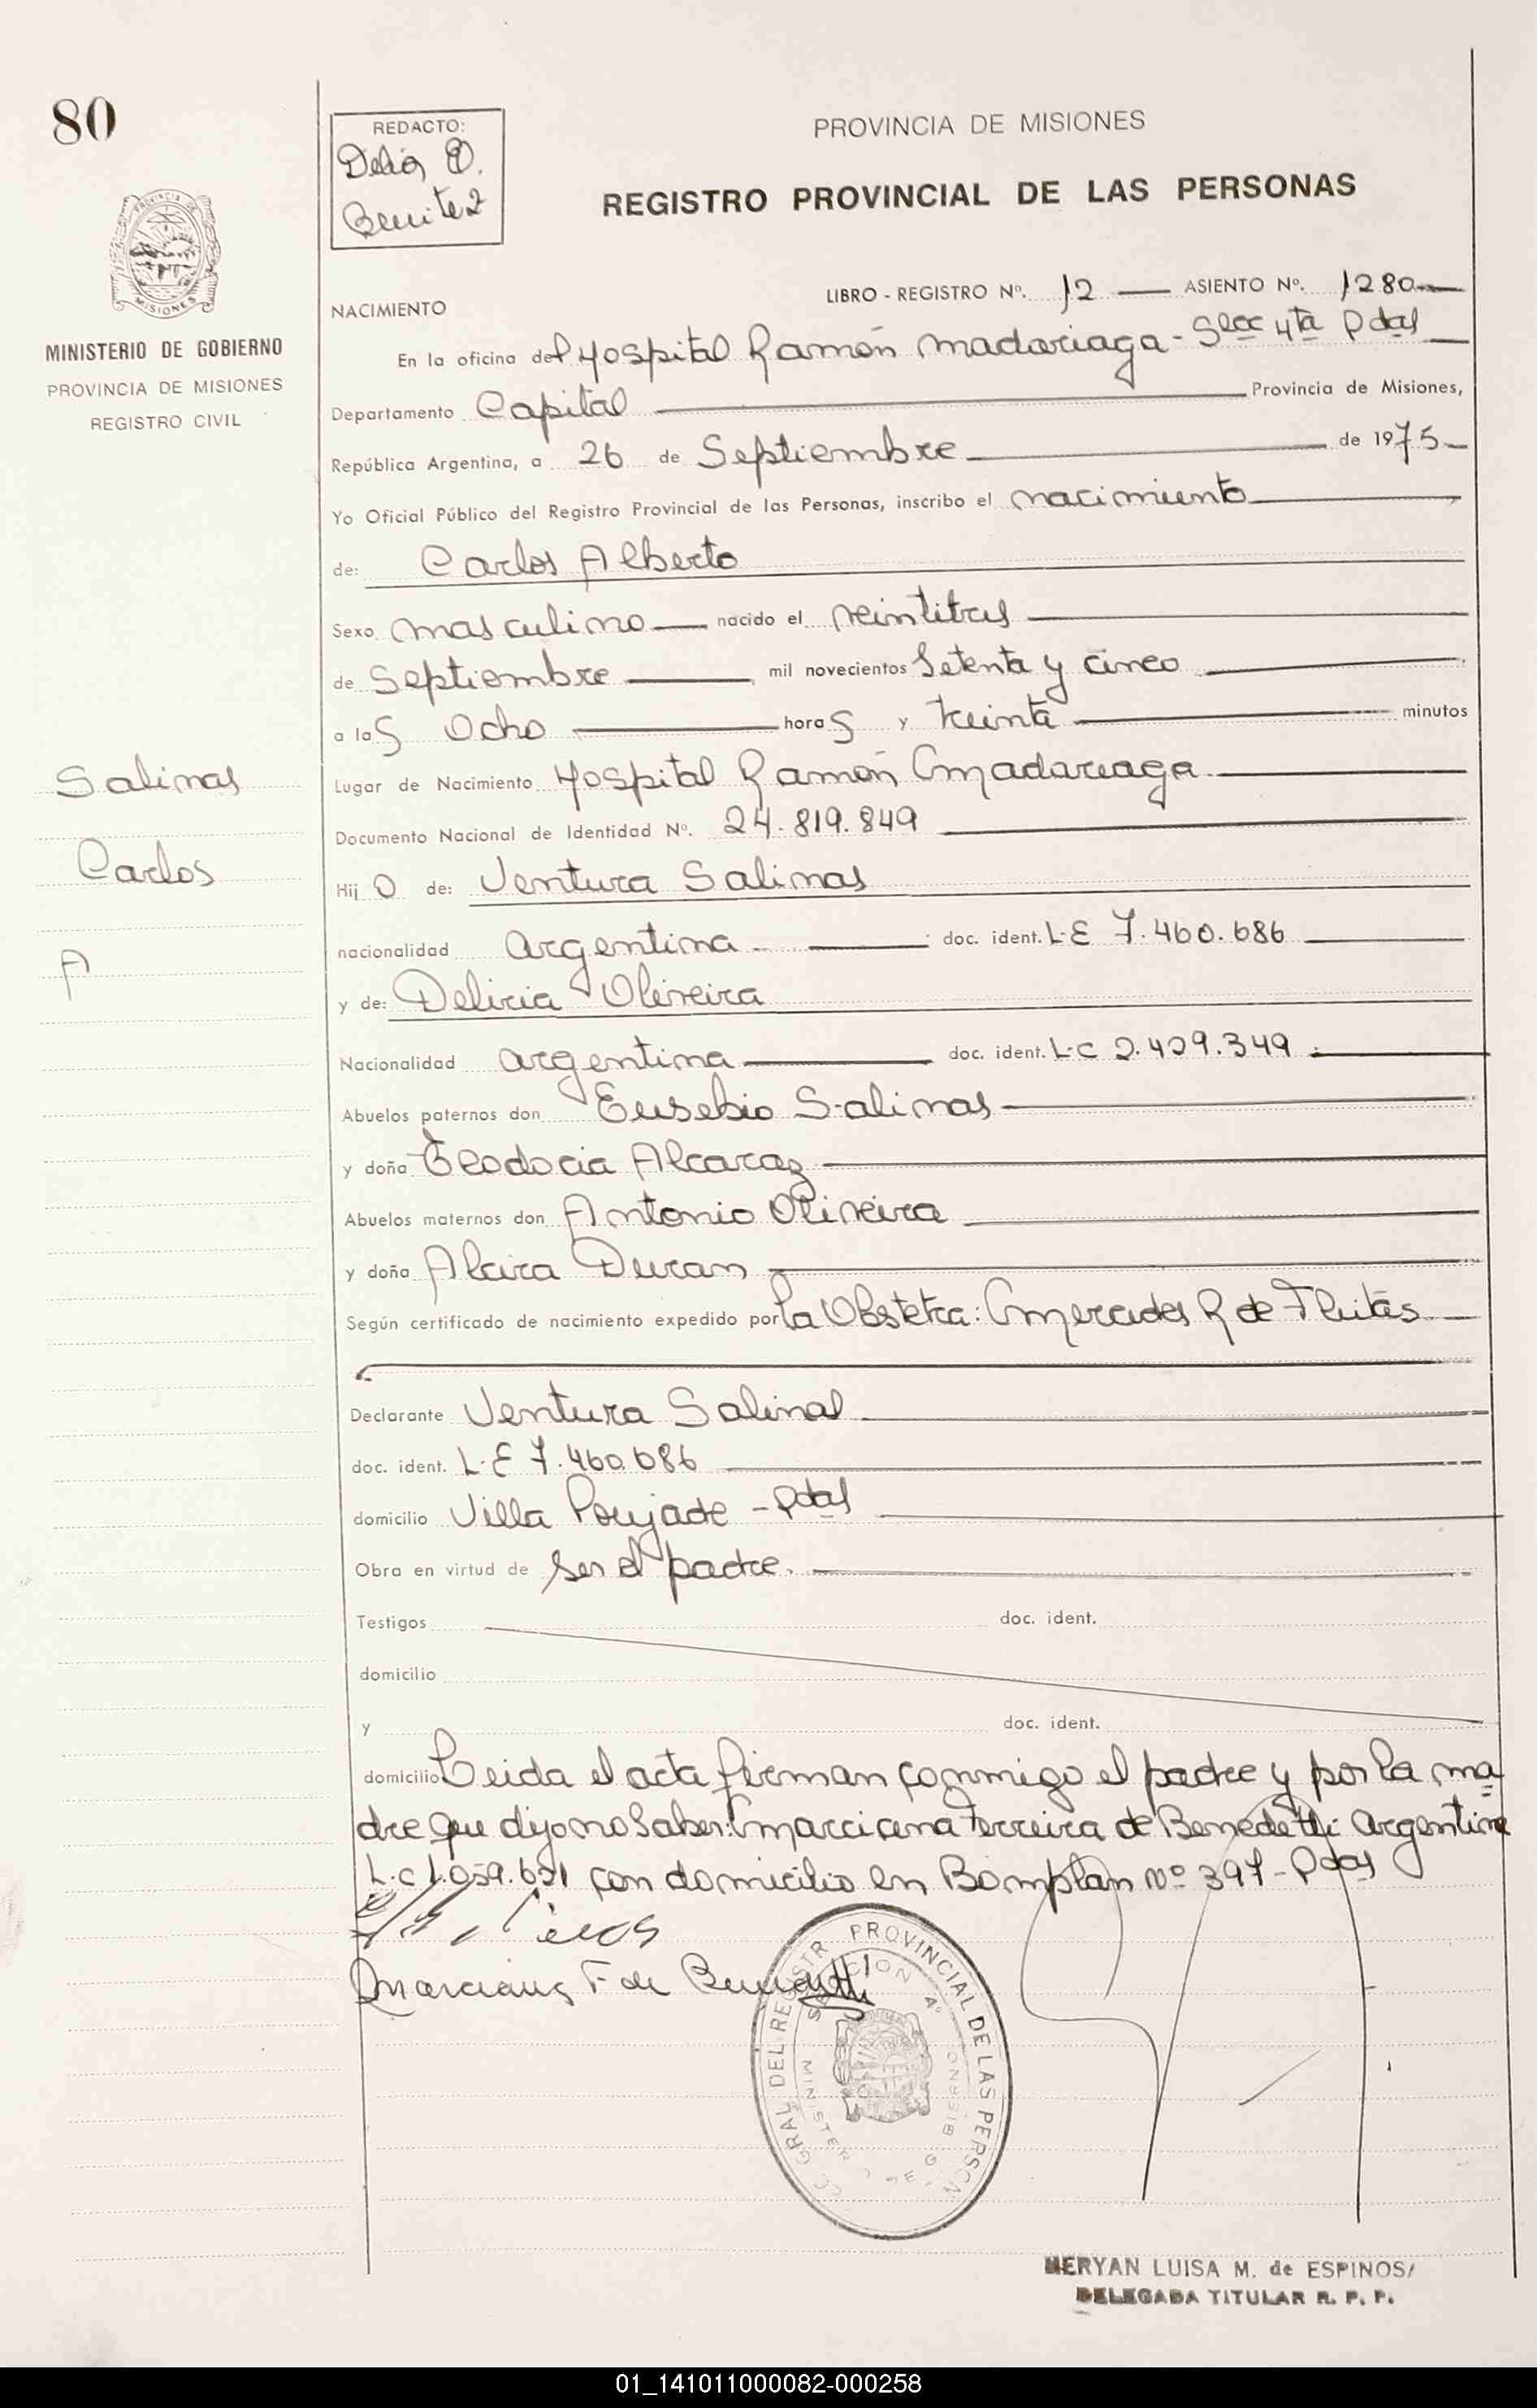 80
REDACTO:
Delia
Benitez
PROVINCIA DE MISIONES
REGISTRO PROVINCIAL DE LAS PERSONAS
MISIONES
MINISTERIO DE GOBIERNO
PROVINCIA DE MISIONES
REGISTRO CIVIL
NACIMIENTO
LIBRO - REGISTRO Nº. 12 ASIENTO Nº. 1280
En la oficina del Hospital Ramón Madariaga - Secc 4ta Pdas
Departamento Capital Provincia de Misiones,
República Argentina, a 26 de Septiembre de 1975
Yo Oficial Público del Registro Provincial de las Personas, inscribo el nacimiento
de: Carlos Alberto
Sexo masculino nacido el veintitres
de Septiembre mil novecientos Setenta y cinco
a las Ocho horas y treinta minutos
Lugar de Nacimiento Hospital Ramón Madariaga
Documento Nacional de Identidad Nº. 24.819.849
Hijo de: Ventura Salinas
nacionalidad argentina doc. ident. L.E 7.460.686
y de: Delicia Oliveira
Nacionalidad argentina doc. ident. L-C 2.429.349
Abuelos paternos don Eusebio Salinas
y doña Teodocia Alcaraz
Abuelos maternos don Antonio Oliveira
y doña Alcira Duran
Según certificado de nacimiento expedido por la Obstetra: Mercedes R de Fleitas
Declarante Ventura Salinas
doc. ident. L.E 7.460.686
domicilio Villa Poujade - Pdas
Obra en virtud de ser el padre.
Testigos doc. ident.
domicilio
y doc. ident.
domicilio Leida el acta firman conmigo el padre y por la ma
dre que dijo no Saber: Marciana Ferreira de Benedetti Argentina
L.C 1.059.651 con domicilio en Bomplan Nº 397 - Pdas
Marciana F de Benedetti
Salinas
Carlos
A
GRAL DEL REGISTR PROVINCIAL DE LAS PERSON
SECCION 4º
MINISTER GOBIERNO
MERYAN LUISA M. de ESPINOS
DELEGADA TITULAR R. P. P.
01_141011000082-000258